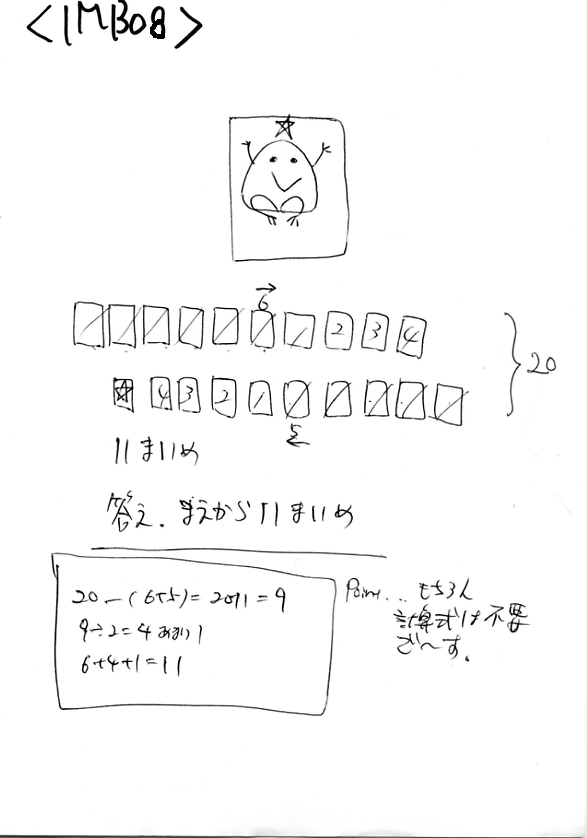 <1MB08>
6
2 3 4
20
4 3 2 1
5
11まいめ
答え. まえから11まいめ
20-(6+5)=20-11=9
9÷2=4あまり1
6+4+1=11
Point... もちろん
計算式は不要
で〜す.